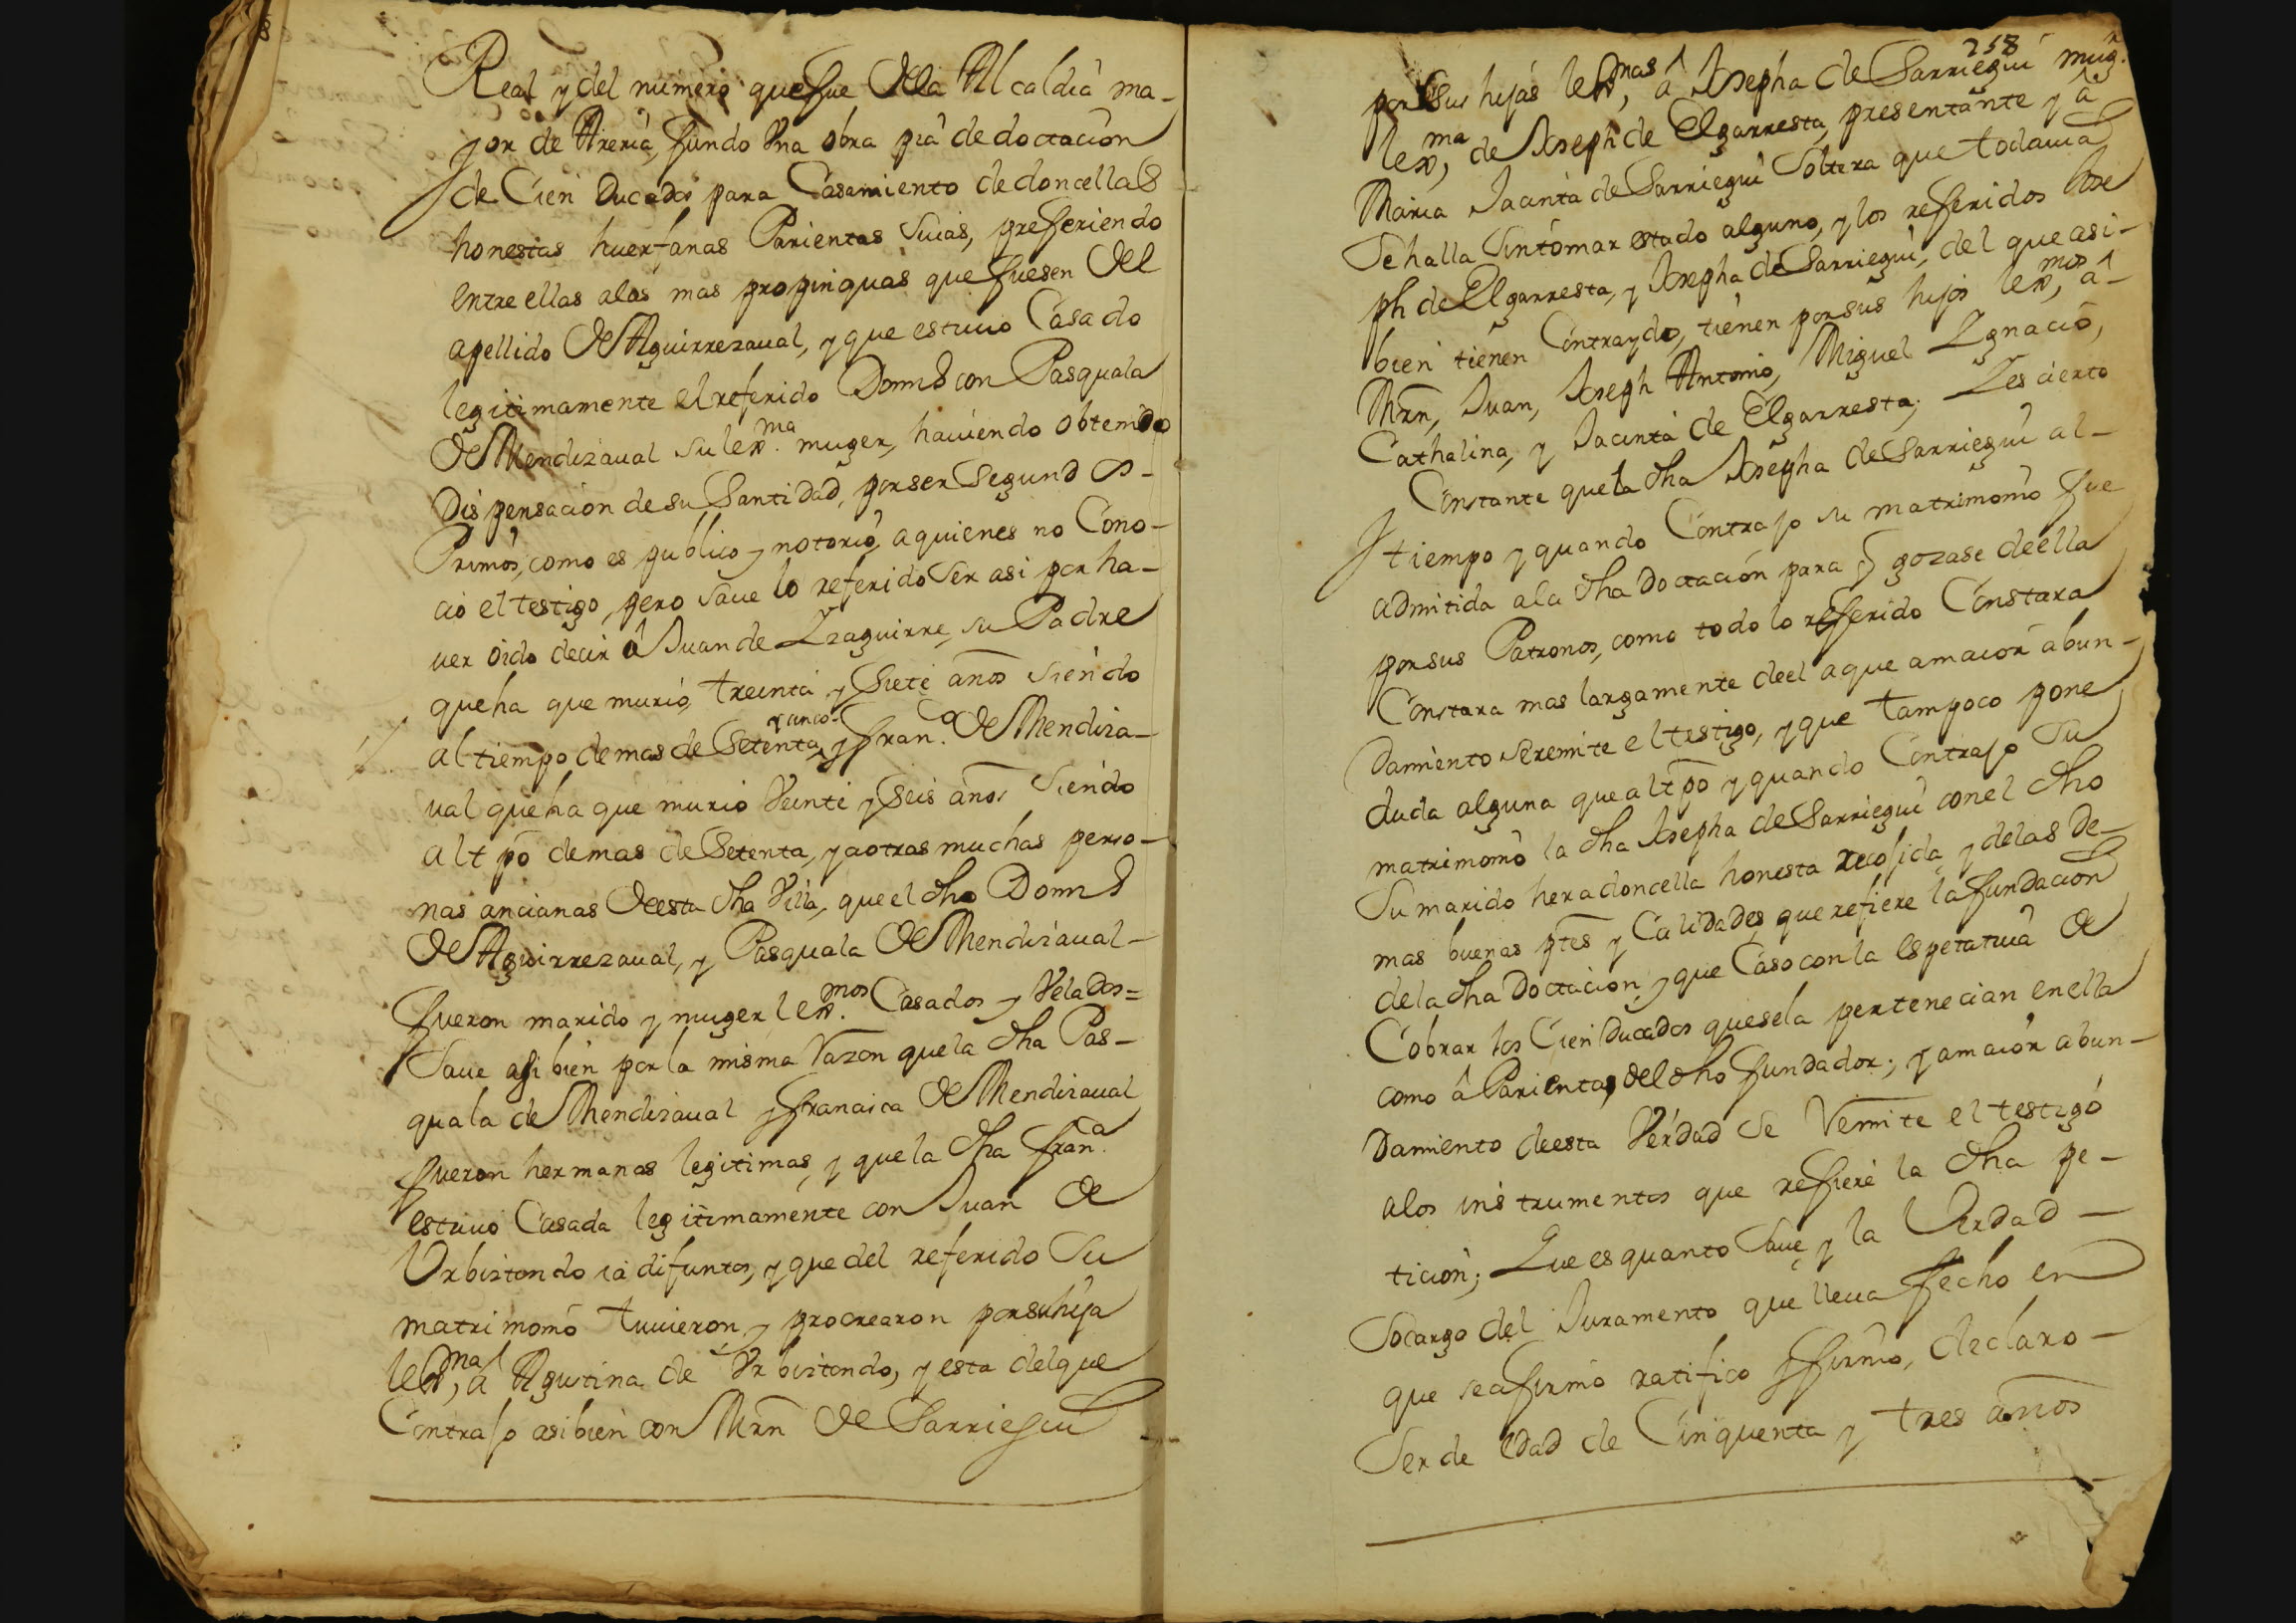 Real y del numero que fue de la Alcaldia ma-
yor de Areria, fundo Vna obra pia de doctacion
de Cien Ducados para Casamiento de doncellas
honestas huerfanas Parientas suias, prefferiendo
entre ellas a las mas propinquas que fuesen del
apellido de Aguirrezaual, y que estuuo Casado
legitimamente el referido Domin^o con Pasquala
de Mendizaual su lex^ma. muger, hauiendo obtenido
Dispensacion de su Santidad, por ser Segundos-
Primos, como es publico y notorio, a quienes no Cono-
cio el testigo, pero saue lo referido Ser asi por ha-
uer oido decir â Juan de Yzaguirre, su Padre
que ha que murio, treinta y Siete años siendo
al tiempo de mas de Setenta y cinco y Fran.^co de Mendiza-
ual que ha que murio Veinte y Seis años Siendo
al tpõ de mas de Setenta, y a otras muchas perso-
nas ancianas de esta dha Villa, que el dho Domin^o
de Aguirrezaual, y Pasquala de Mendizaual-
fueron marido y muger lex^mos. Casados y Velados=
Saue asi bien por la misma Razon que la dha Pas-
quala de Mendizaual y Francisca de Mendizaual
fueron hermanas legitimas, y que la dha fran^ca.
estuuo Casada legitimamente con Juan de
Urbiztondo ia difuntos, y que del referido Su
matrimonio tuuieron, y procrearon por su hija
lex^ma, â Agustina de Vrbiztondo, y esta del que
Contrajo asi bien con Mrñ de Sarriegui
258
por sus hijas lex^mas, â Josepha de Sarriegui mug^r.
lex^ma, de Joseph de Elgarresta, presentante y â
Maria Jacinta de Sarriegui Soltera que todauia
Se halla Sin tomar estado alguno, y los referidos Jose
ph de Elgarresta, y Josepha de Sarriegui, del que asi-
bien tienen Contraydo, tienen por sus hijos lex^mos, â-
Mrñ, Juan, Joseph Antonio, Miguel Ygnacio,
Cathalina, y Jacinta de Elgarresta; Y es cierto
Constante que la dha Josepha de Sarriegui al-
tiempo y quando Contrajo su matrimonio fue
admitida a la dha Doctacion para q̃ gozase de ella
por sus Patronos, como todo lo refferido Constara
Constara mas largamente de el a que a maior abun-
damiento se remite el testigo, y que tampoco pone
duda alguna que al tpõ y quando Contrajo Su
matrimonio la dha Josepha de Sarriegui con el dho
Su marido hera doncella honesta recojida, y de las de-
mas buenas ptes y Calidades, que refiere la fundacion
de la dha Doctacion, y que Caso con la espetatiua de
Cobrar los Cien Ducados que se la pertenecian en ella
como â Parienta, del dho fundador; y a maior abun-
damiento de esta Verdad se Remite el testigo
a los instrumentos que refiere la dha pe-
ticion; Que es quanto Saue, y la Verdad-
Socargo del Juramento que lleua fecho en
que se afirmo ratifico y firmo, declaro-
Ser de edad de Cinquenta y tres años